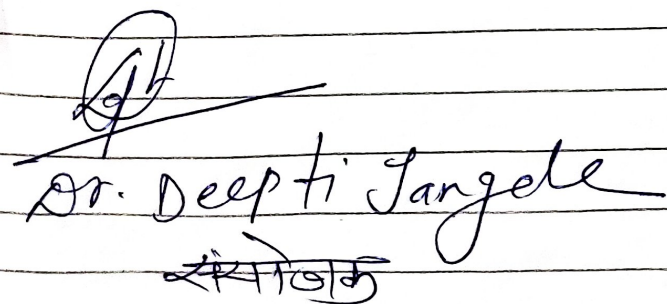 Dr. Deepti Jangele
संयोजक